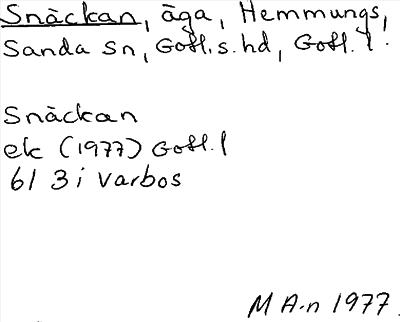 Snäckan, äga, Hemmungs,
Sanda sn, Gotl. s. hd, Gotl. l.
Snäckan
ek (1977) Gotl. l
6I 3i Varbos
M A-n 1977.